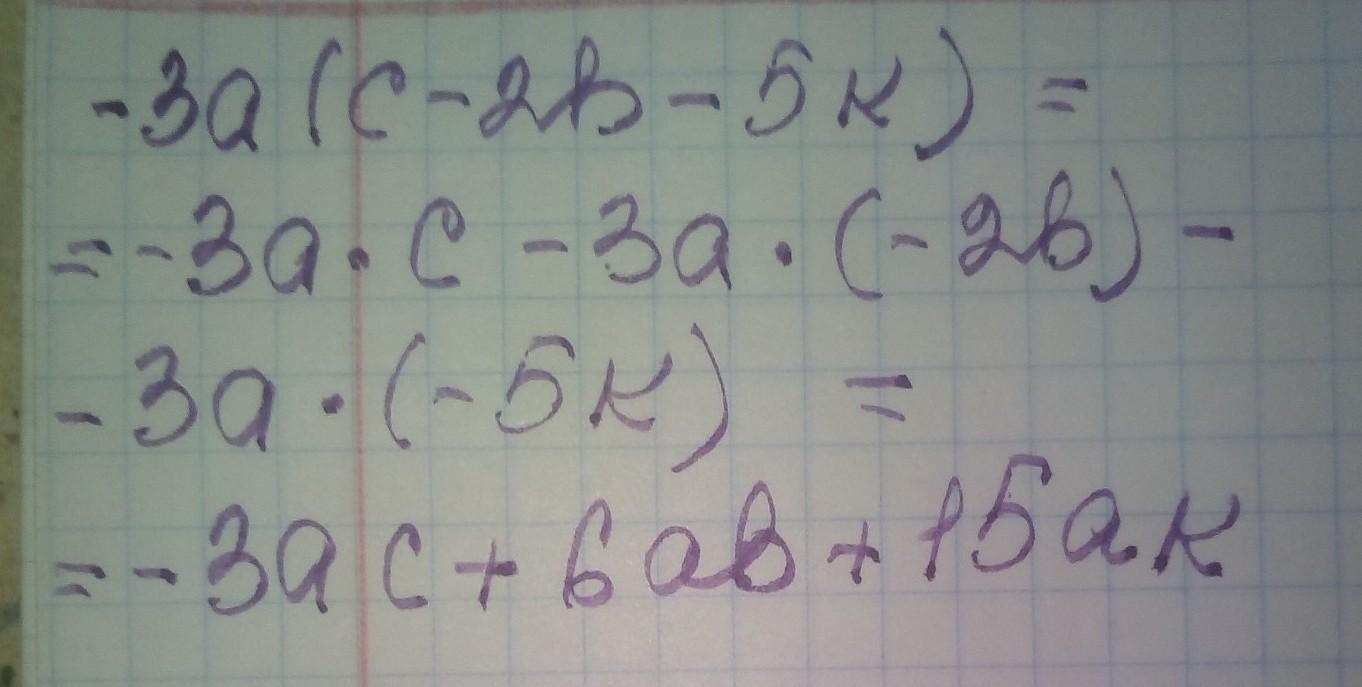 -3a(c-2b-5к)=
=-3a·c-3a·(-2b)-
-3a·(-5к) =
=-3ac+6ab+15aк